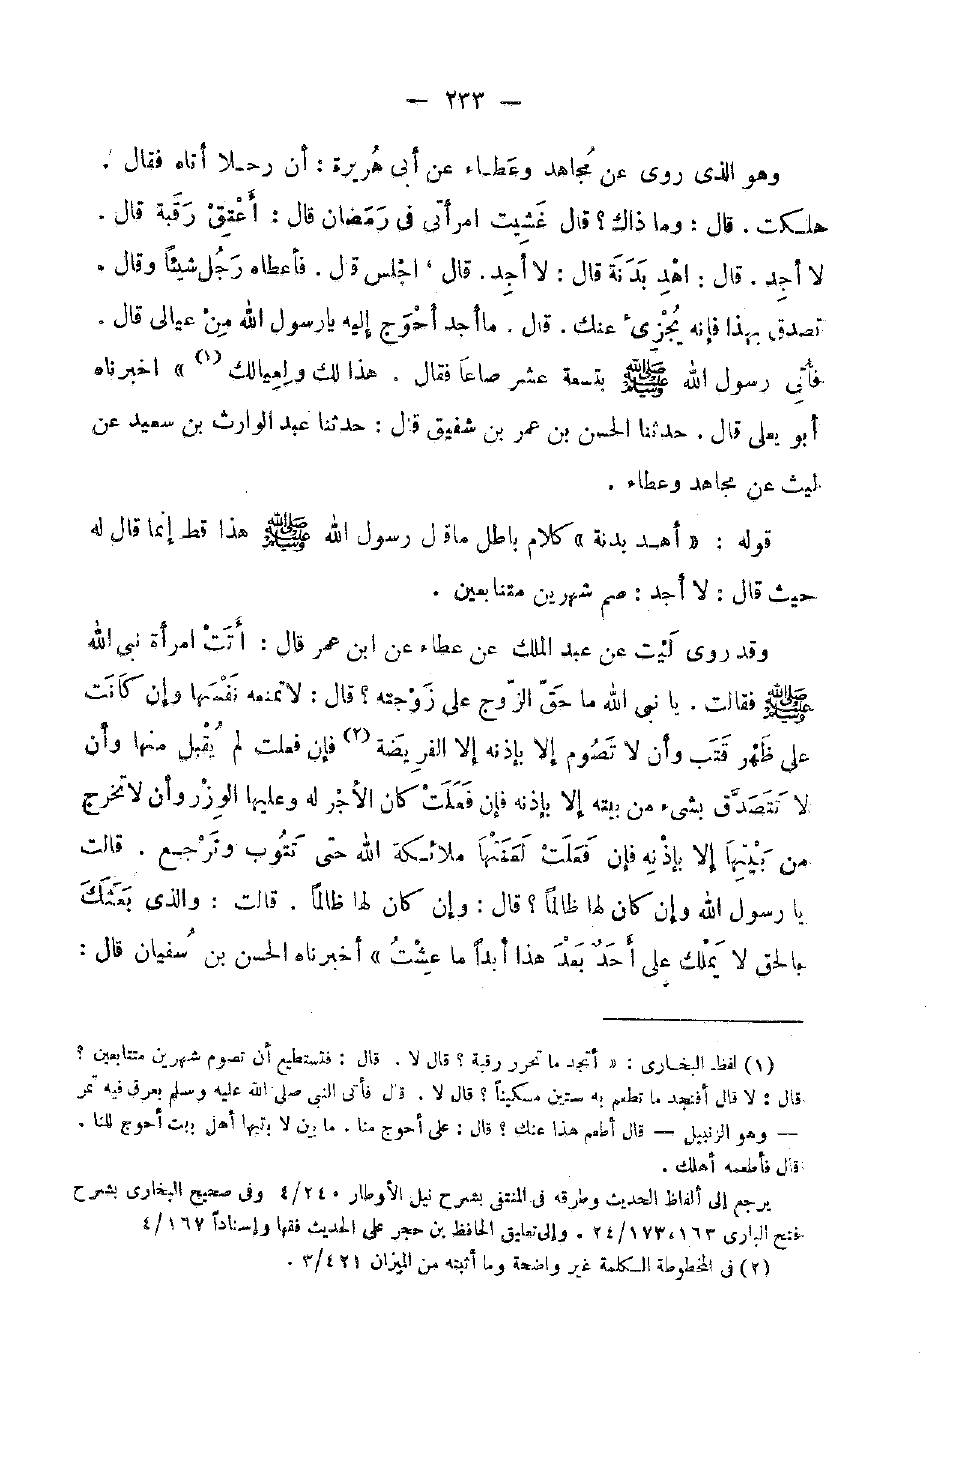 — ٢٣٣ —
وهو الذى روى عن مُجاهد وعَطاء عن أبى هُريرة : أن رجلا أتاه فقال .
هلكت . قال : وما ذاك ؟ قال غَشيت امرأتى فى رَمَضان قال : أَعْتِقْ رَقَبة قال .
لا أجِد . قال : اهْدِ بَدَنَة قال : لا أجِد . قال ‘ اجْلس قال . فأعطاه رَجُل شيئاً وقال .
تصدق بهذا فإنه يُجْزِىء عنك . قال . ما أجد أحْوَج إليه يارسول الله مِنْ عيالى قال .
فأتِى رسول الله ﷺ بتسعة عشر صاعاً فقال . هذا لك ولِعِيالك (١) » اخبرناه
أبو يعلى قال . حدثنا الحسن بن عمر بن شفيق قال : حدثنا عبد الوارث بن سعيد عن
ليث عن مجاهد وعطاء .
قوله : « أهد بدنة » كلام باطل ماقال رسول الله ﷺ هذا قط إنما قال له
حيث قال : لا أجد : صم شهرين متتابعين .
وقد روى لَيْث عن عبد الملك عن عطاء عن ابن عمر قال : أَتَتْ امرأة نبى الله
ﷺ فقالت . يا نبى الله ما حَقّ الزّوج على زَوْجته ؟ قال : لاتمنعه نَفْسَها وإن كَانَت
على ظَهْر قَتَب وأن لا تَصُوم إلا بإذنه إلا الفرِيضَة (٢) فإن فعلت لم يُقْبل منها وأن
لا تَتَصَدَّق بشىء من بيته إلا بإذنه فإن فَعَلَتْ كان الأجْر له وعليها الوِزْر وأن لاتخرج
من بَيْتِهَا إلا بإذْنِه فإن فَعَلَتْ لَعَنَتْهَا ملائكة الله حتى تَتُوب وتَرْجع . قالت
يا رسول الله وإن كان لها ظالماً ؟ قال : وإن كان لها ظالماً . قالت : والذى بَعَثَكَ
بالحق لا يَمْلك على أَحَدٌ بَعْدَ هذا أبداً ما عِشْتُ » أخبرناه الحسن بن سُفيان قال :
(١) لفظ البخارى : « أتجد ما تحرر رقبة ؟ قال لا . قال : فتستطيع أن تصوم شهرين متتابعين ؟
قال : لا قال أفتجد ما تطعم به ستين مسكيناً ؟ قال لا . قال فأتى النبى صلى الله عليه وسلم بعرق فيه تمر
— وهو الزنبيل — قال أطعم هذا عنك ؟ قال : على أحوج منا . ما بين لا بتيها أهل بيت أحوج للنا .
قال فأطعمه أهلك .
يرجع إلى ألفاظ الحديث وطرقه فى المنتقى بشرح نيل الأوطار ٤/٢٤٠ وفى صحيح البخارى بشرح
فتح البارى ٢٤/١٧٣،١٦٣ . وإلى تعليق الحافظ بن حجر على الحديث فقها وإسناداً ٤/١٦٧
(٢) فى المخطوطة الكلمة غير واضحة وما أثبته من الميزان ٣/٤٢١ .